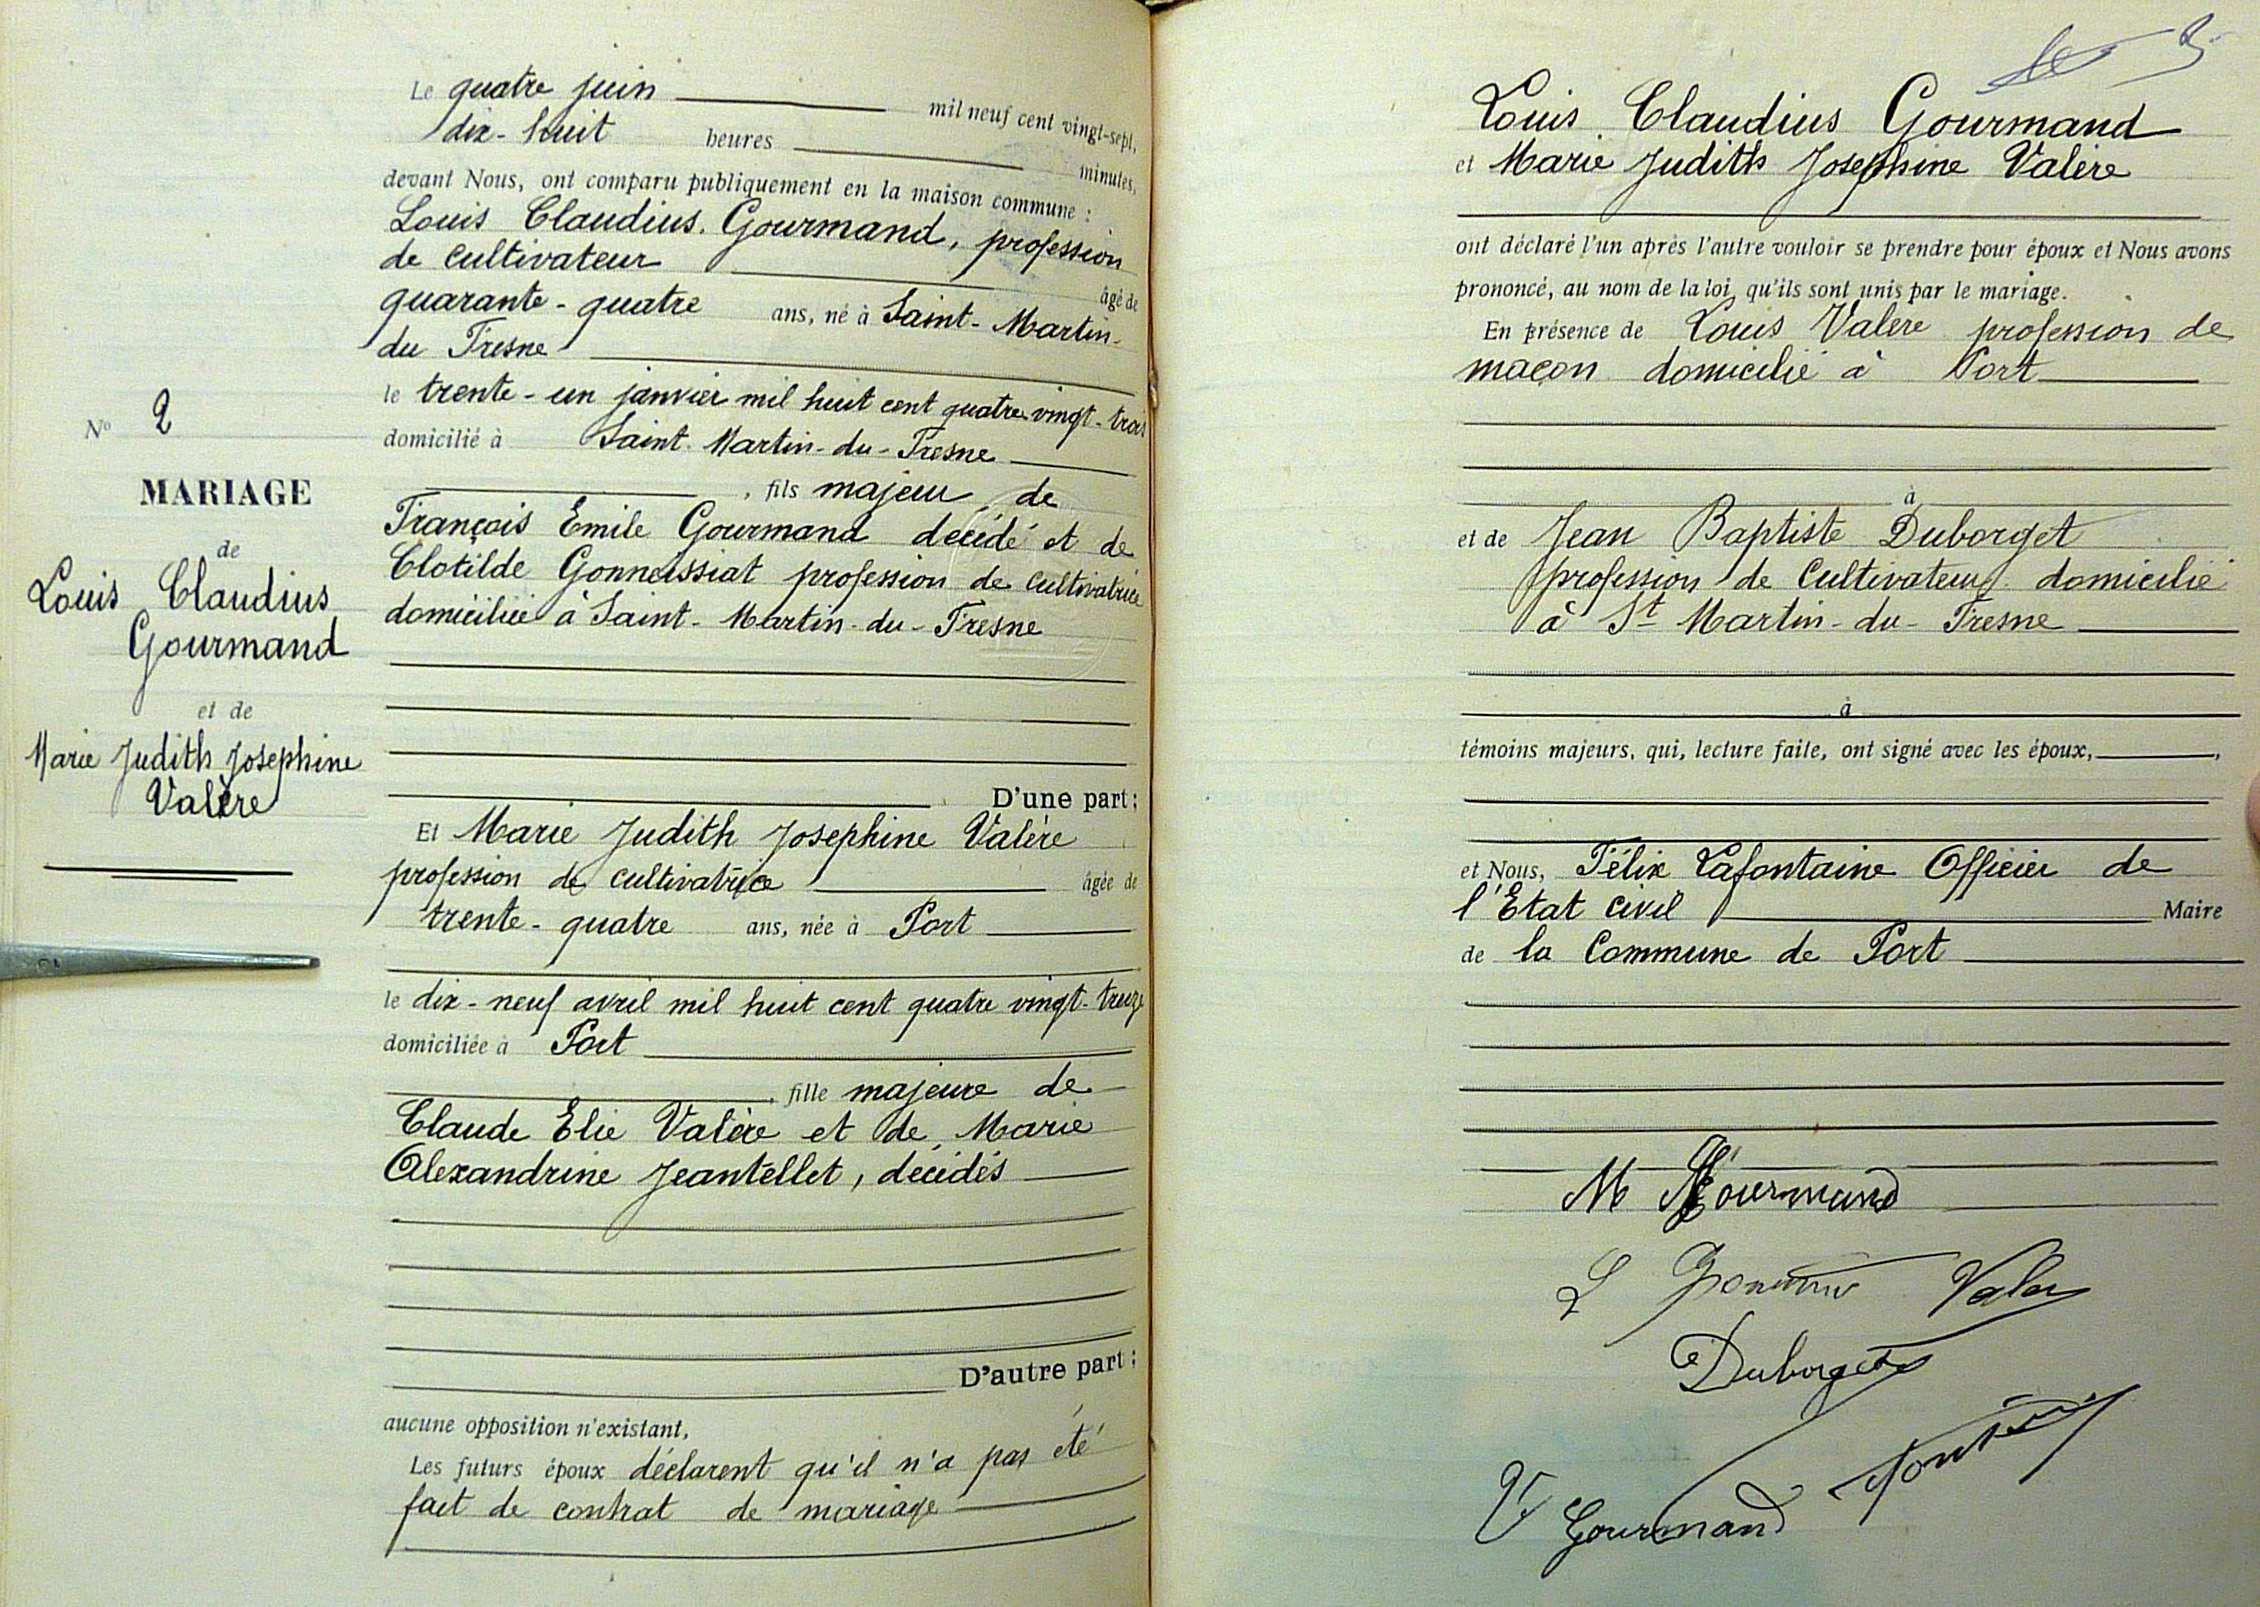 Le quatre juin mil neuf cent vingt-sept,
dix-huit heures minutes,
devant Nous, ont comparu publiquement en la maison commune :
Louis Claudius. Gourmand, profession
de cultivateur âgé de
quarante-quatre ans, né à Saint-Martin-
du Fresne
le trente-un janvier mil huit cent quatre vingt-trois
domicilié à Saint-Martin-du-Fresne
, fils majeur de
François Emile Gourmand décédé et de
Clotilde Gonnessiat profession de cultivatrice
domiciliée à Saint-Martin-du-Fresne
D'une part ;
Nº 2
MARIAGE
de
Louis Claudius
Gourmand
et de
Marie Judith Josephine
Valère
Et Marie Judith Josephine Valère
profession de cultivatrice âgée de
trente-quatre ans, née à Port
le dix-neuf avril mil huit cent quatre vingt-treize
domiciliée à Port
, fille majeure de
Claude Elie Valère et de Marie
Alexandrine Jeantellet, décédés
D'autre part ;
aucune opposition n'existant,
Les futurs époux déclarent qu'il n'a pas été
fait de contrat de mariage
Louis Claudius Gourmand
et Marie Judith Josephine Valère
ont déclaré l'un après l'autre vouloir se prendre pour époux et Nous avons
prononcé, au nom de la loi, qu'ils sont unis par le mariage.
En présence de Louis Valère profession de
maçon domicilié à Port
à
et de Jean Baptiste Duborget
profession de Cultivateur domicilié
à St Martin-du-Fresne
à
témoins majeurs, qui, lecture faite, ont signé avec les époux,
et Nous, Félix Lafontaine Officier de
l'Etat civil Maire
de la Commune de Port
M Gourmand
L Valer
Duborget
Gourmand